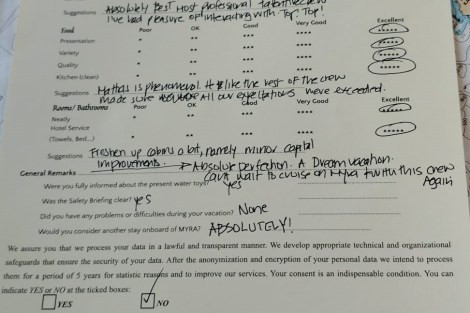 Suggestions Absolutely Best Most professional
I've had pleasure of interacting with. Top! Top!
Food Poor OK Good Very Good Excellent
Presentation * ** *** **** *****
Variety * ** *** **** *****
Quality * ** *** **** *****
Kitchen (clean) * ** *** **** *****
Suggestions is phenomenal. He like the rest of the crew
made sure All our expectations were exceeded.
Rooms/ Bathrooms Poor OK Good Very Good Excellent
Neatly * ** *** **** *****
Hotel Service
(Towels, Bed...) * ** *** **** *****
Suggestions Freshen up cabins a bit, namely minor capital
improvements. Absolute Perfection. A Dream vacation.
General Remarks Can't wait to cruise on Myra with this crew
Again
Were you fully informed about the present water toys? yes
Was the Safety Briefing clear? yes
Did you have any problems or difficulties during your vacation? None
Would you consider another stay onboard of MYRA? ABSOLUTELY!
We assure you that we process your data in a lawful and transparent manner. We develop appropriate technical and organizational
safeguards that ensure the security of your data. After the anonymization and encryption of your personal data we intend to process
them for a period of 5 years for statistic reasons and to improve our services. Your consent is an indispensable condition. You can
indicate YES or NO at the ticked boxes:
YES NO